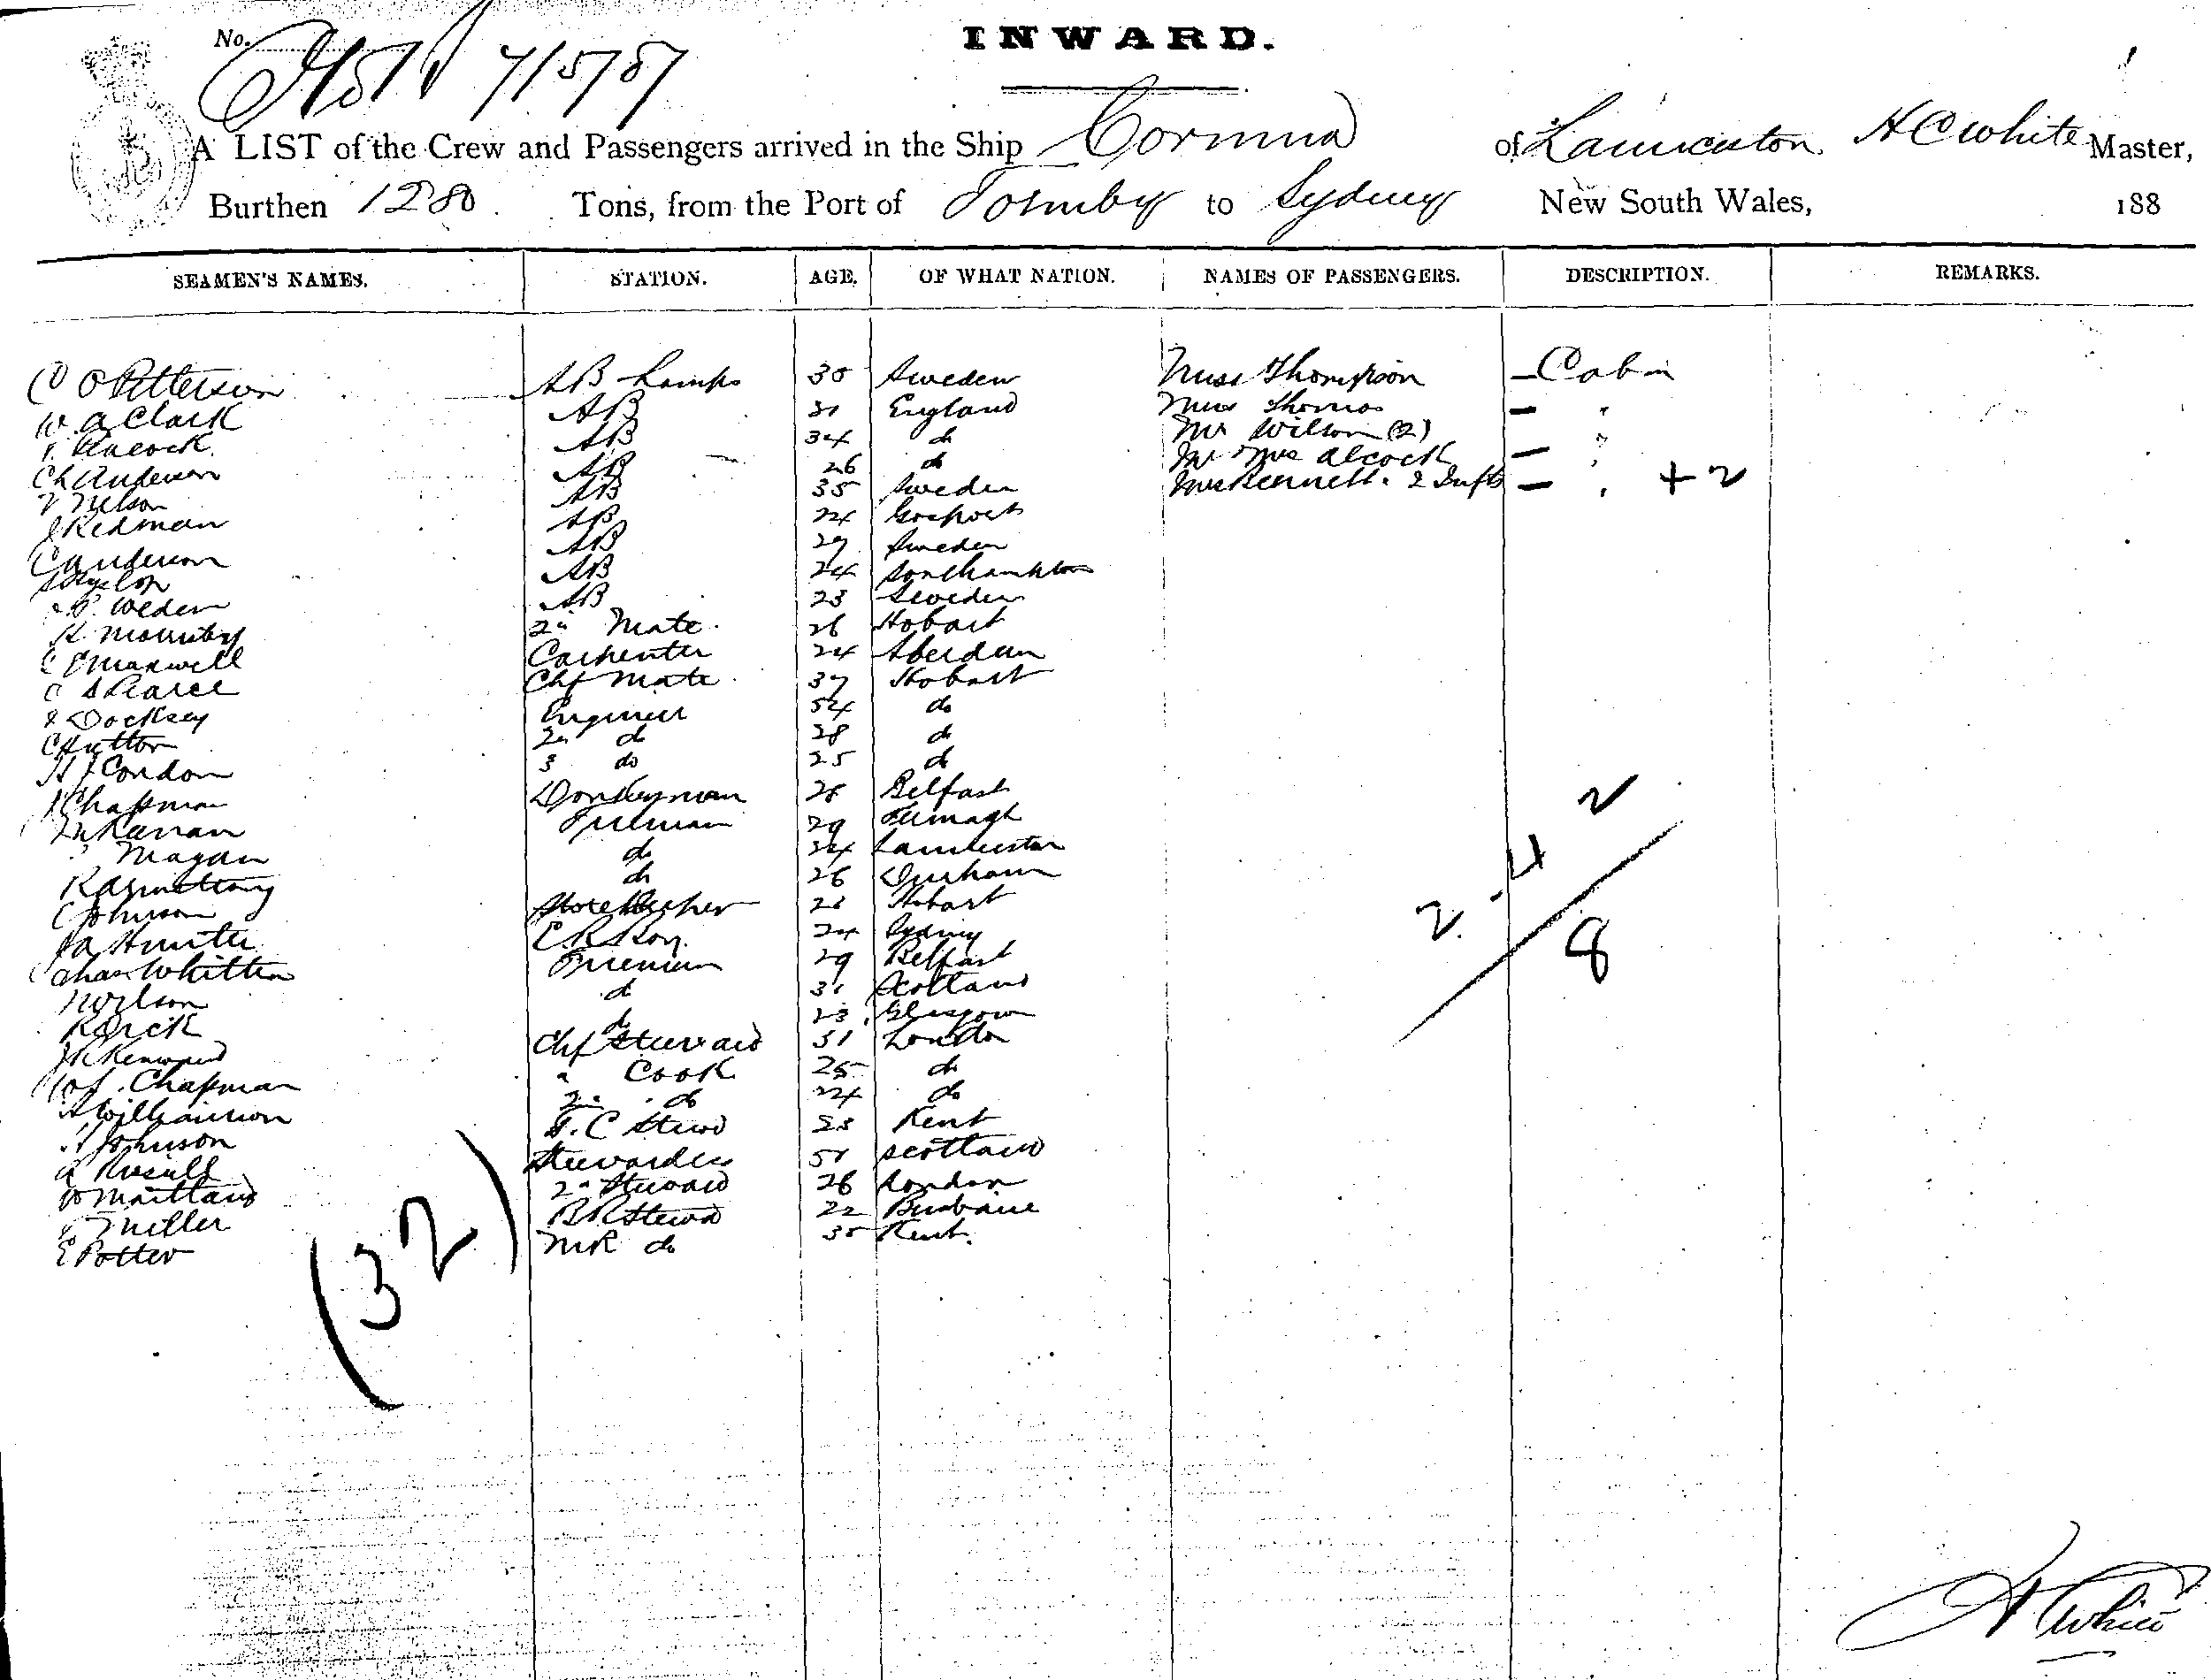 No.
7/5/87
INWARD.
A LIST of the Crew and Passengers arrived in the Ship Corinna of Launceston H C White Master,
Burthen 1280 Tons, from the Port of Formby to Sydney New South Wales, 188
SEAMEN'S NAMES. STATION. AGE. OF WHAT NATION. NAMES OF PASSENGERS. DESCRIPTION. REMARKS.
C O Petterson AB Lamps 30 Sweden Miss Thompson — Cabin
W. A Clark AB 31 England Miss Thomas — "
Peacock AB 34 do Mr Wilson (2) "
Ch Anderson AB 26 do Mr Mrs Alcock — "
Nelson AB 35 Sweden Mrs Bennett. 2 Infts — " + 2
J Redman AB 24 Gosport
C Anderson AB 29 Sweden
Hyslop AB 24 Southampton
Weden AB 23 Sweden
H. Mounby 2" Mate. 26 Hobart
Maxwell Carpenter 24 Aberdeen
C S Pearce Chf Mate 37 Hobart
Docksey Engineer 54 do
C Hutton 2" do 28 do
H J Condon 3 do 25 do
J Chapman Donkeyman 28 Belfast
Fireman 29
Magan do 24 Launceston
R Armstrong do 26 Durham
C Johnson Storekeeper 23 Hobart
Hunter E. R. Boy. 24 Sydney
Chas Whitten Fireman 29 Belfast
Wilson do 31 Scotland
R Dick do 23 Glasgow
Kenward Chf Steward 31 London
Chapman " Cook 25 do
A Williamson 2" do 24 do
Johnson F. C Stewd 23 Kent
Russell Stewardess 51 Scotland
W Maitland 2" Steward 26 London
Miller B R Stewd 22 Brisbane
E Potter M R do 35 Kent.
(32)
2. 4 2
8
H C White